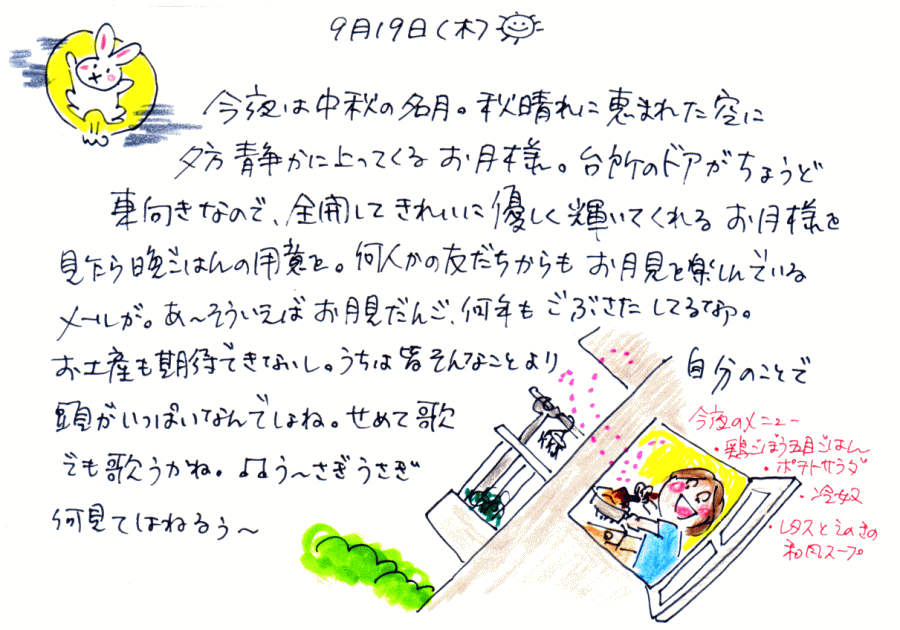 9月19日(木)
今夜は中秋の名月。秋晴れに恵まれた空に
夕方静かに上ってくるお月様。台所のドアがちょうど
東向きなので、全開してきれいに優しく輝いてくれるお月様を
見乍ら晩ごはんの用意を。何人かの友だちからもお月見を楽しんでいる
メールが。あ〜そういえばお月見だんご、何年もごぶさたしてるなあ。
お土産も期待できないし。うちは皆そんなことより自分のことで
頭がいっぱいなんでしょね。せめて歌
でも歌うかね。♫う〜さぎうさぎ
何見てはねるぅ〜
今夜のメニュー
・鶏ごぼう五目ごはん
・ポテトサラダ
・冷奴
・レタスとえのきの
和風スープ